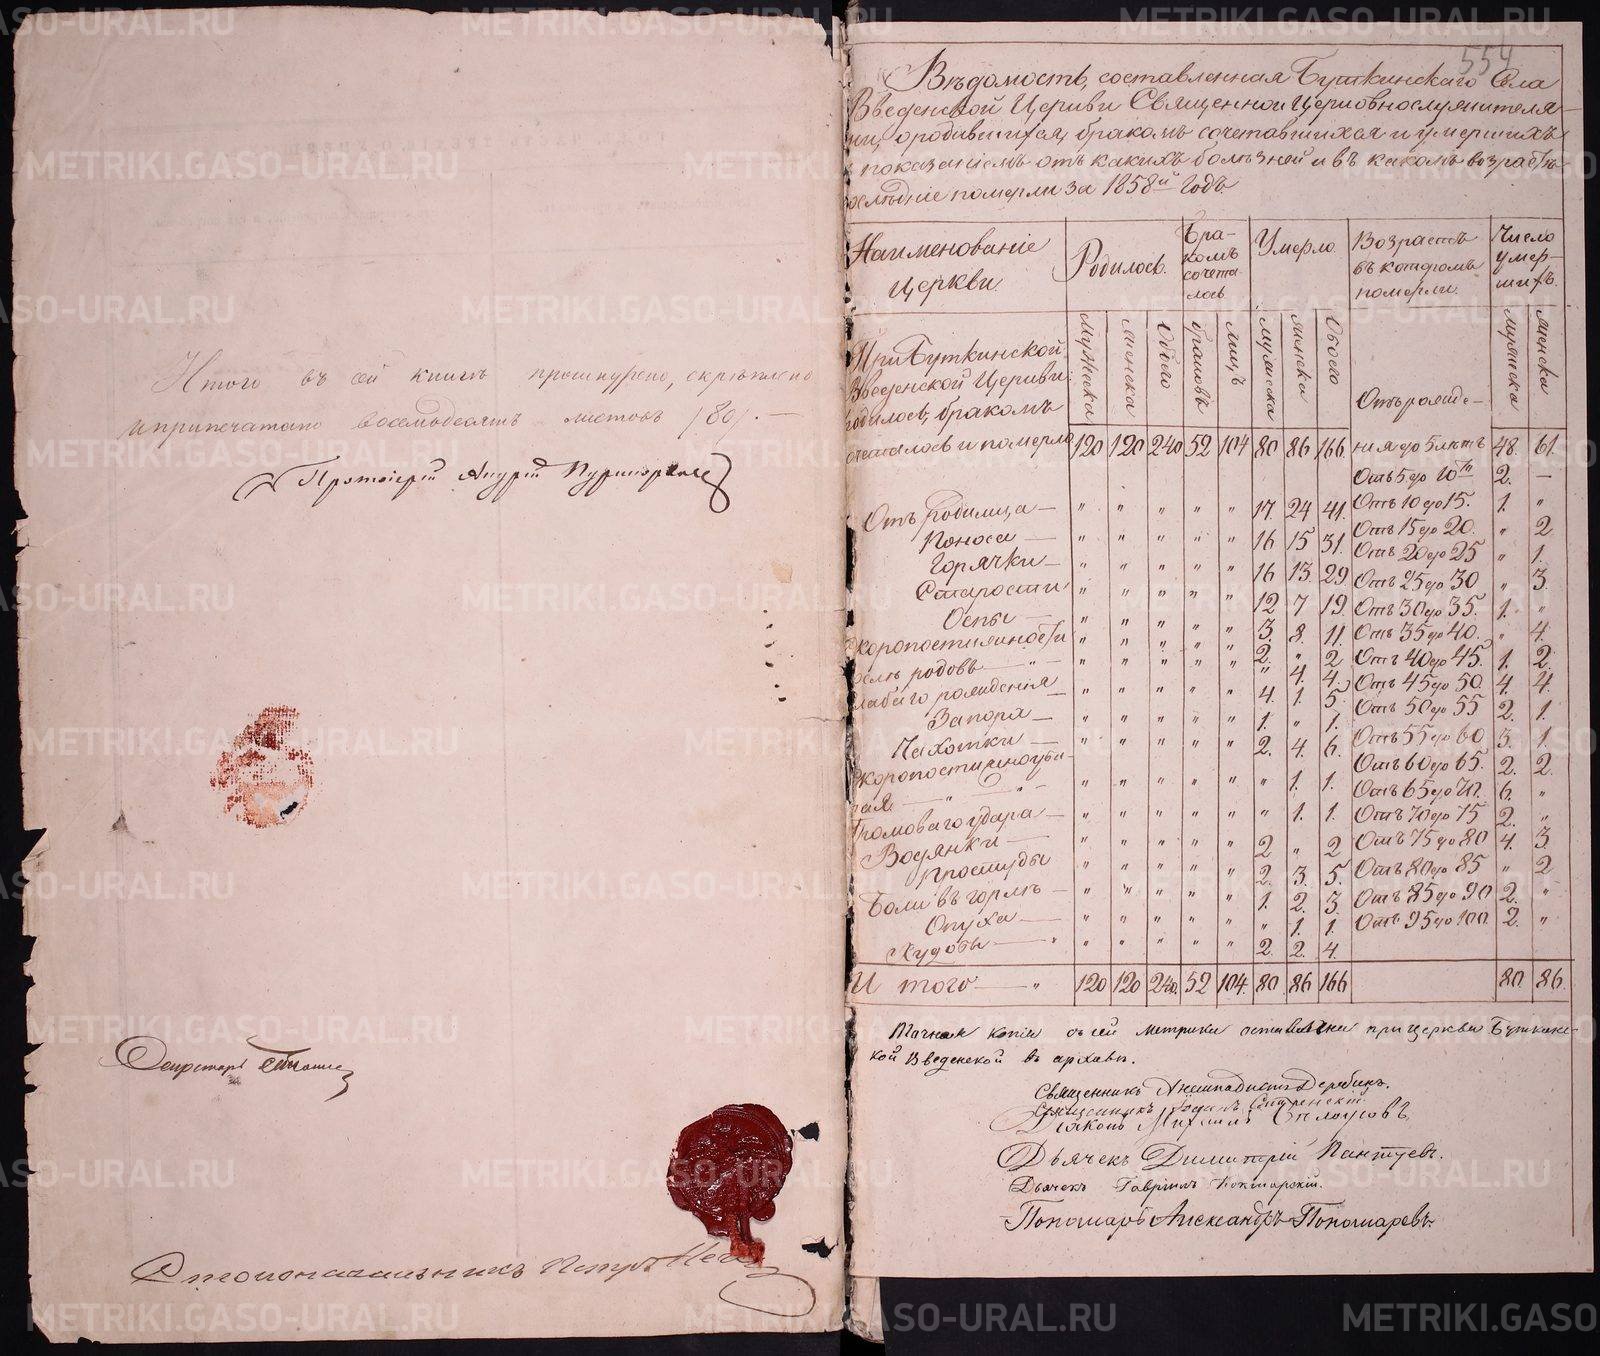 Итого въ сей книгѣ прошнурено, скрѣплено
и припечатано восемьдесятъ листовъ /80/. —
Протоіерей Андрей
Секретарь
Столоначальникъ Петръ
554
Вѣдомость, составленная Буткинскаго Села
Введенской Церкви Священно и Церковнослужителя-
ми, о родившихся, бракомъ сочетавшихся и умершихъ
съ показаніемъ отъ какихъ болѣзней и въ какомъ возрастѣ
послѣдніе померли за 1858й Годъ
Наименованіе Церкви.
Родилось.
Бра-комъ сочета-лось
Умерло.
Возрастъ въ котормъ померли.
Число умер-шихъ.
Мужеска женска Обоего браковъ лицъ мужеска женска Обоего мужеска женска
При Буткинской
Введенской Церкви
родилось, бракомъ Отъ рожде-
сочеталось и померло 120 120 240 52 104 80 86 166 нія до 5 лѣтъ 48. 61.
Отъ 5 до 10ти 2. —
Отъ родимца — " " " " " 17. 24 41. Отъ 10 до 15. 1. "
Поноса — " " " " " 16 15 31. Отъ 15 до 20. " 2
Горячки — " " " " " 16 13. 29 Отъ 20 до 25 " 1.
Старости " " " " " 12 7 19. Отъ 25 до 30 " 3.
Оспы — " " " " " 3. 8. 11. Отъ 30 до 35. 1. "
скоропостижности " " " " " 2. " 2 Отъ 35 до 40. " 4.
послѣ родовъ — " " " " " " 4. 4. Отъ 40 до 45. 1. 2.
слабаго рожденія — " " " " " 4. 1. 5. Отъ 45 до 50. 4. 4.
Запора — " " " " " 1. " 1. Отъ 50 до 55 2. 1.
Чахотки — " " " " " 2. 4. 6. Отъ 55 до 60 3. 1.
скоропостижно
Отъ 60 до 65. 2. 2.
" " " " " " 1. 1. Отъ 65 до 70. 6. "
Громоваго удара — " " " " " " 1. 1. Отъ 70 до 75 2. "
Водянки — " " " " " 2 " 2 Отъ 75 до 80 4. 3.
Простуды " " " " " 2. 3. 5. Отъ 80 до 85 " 2
Боли въ горлѣ — " " " " " 1. 2. 3 Отъ 85 до 90 2. "
Опуха — " " " " " " 1. 1. Отъ 95 до 100. 2. "
Худобы — " " " " " 2. 2. 4.
И того — " 120 120 240. 52 104. 80 86 166 80. 86.
Точная копія съ сей метрики оставлена при церкви Буткинс-
кой Введенской въ архивѣ.
Священникъ Дерябинъ.
Священникъ
Діяконъ Михаилъ Бѣлоусовъ
Дьячекъ Димитрій Пантуевъ.
Дьячекъ Гавріилъ
Пономарь Александръ Пономаревъ.
METRIKI.GASO-URAL.RU